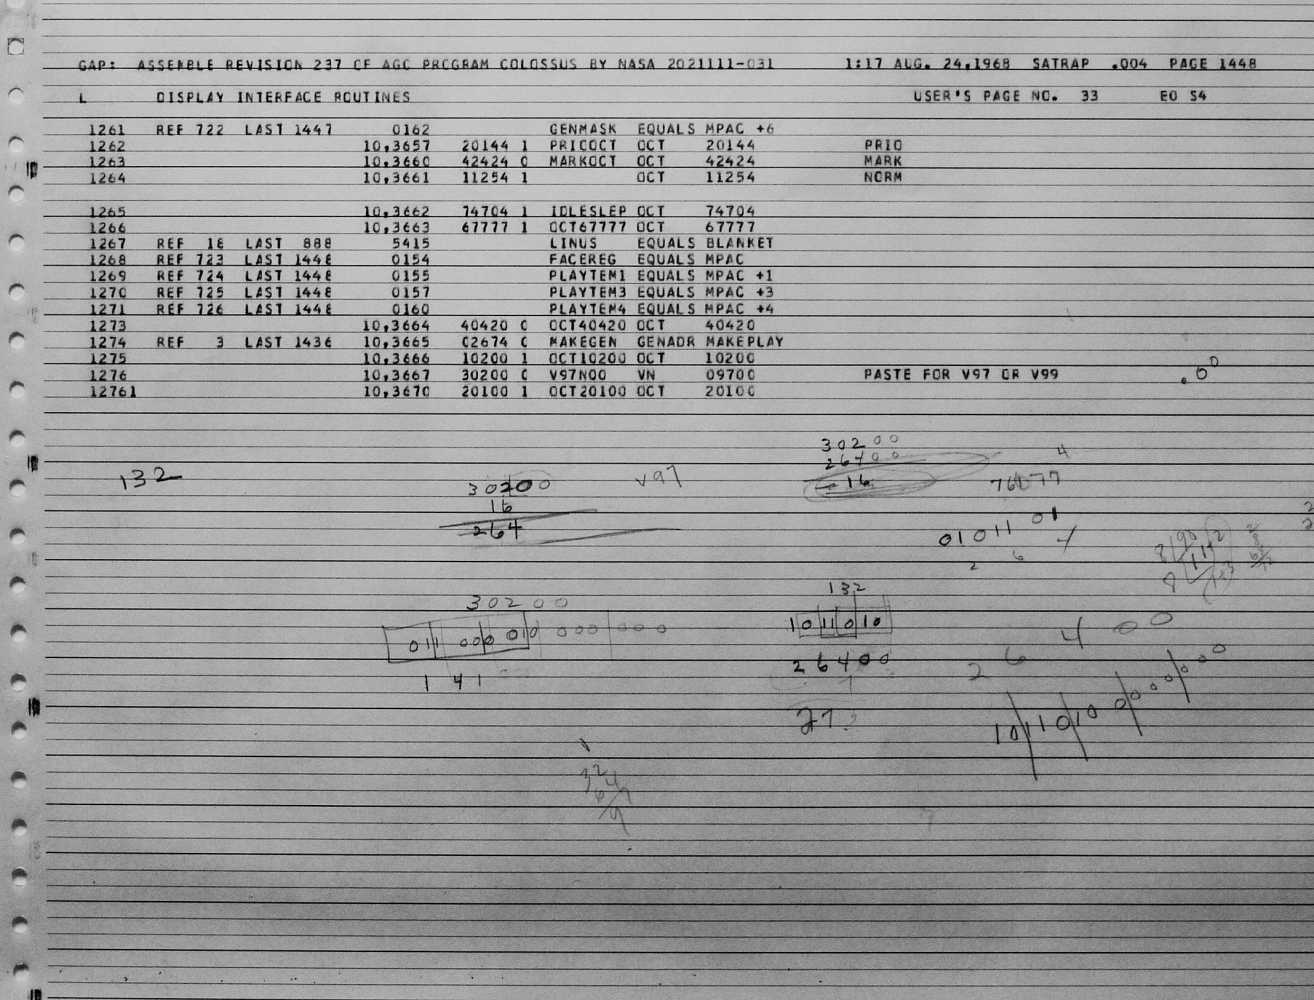 GAP: ASSEMBLE REVISION 237 OF AGC PROGRAM COLOSSUS BY NASA 2021111-031 1:17 AUG. 24,1968 SATRAP .004 PAGE 1448
L DISPLAY INTERFACE ROUTINES USER'S PAGE NO. 33 E0 S4
1261 REF 722 LAST 1447 0162 GENMASK EQUALS MPAC +6
1262 10,3657 20144 1 PRIOOCT OCT 20144 PRIO
1263 10,3660 42424 0 MARKOCT OCT 42424 MARK
1264 10,3661 11254 1 OCT 11254 NORM
1265 10,3662 74704 1 IDLESLEP OCT 74704
1266 10,3663 67777 1 OCT67777 OCT 67777
1267 REF 16 LAST 888 5415 LINUS EQUALS BLANKET
1268 REF 723 LAST 1448 0154 FACEREG EQUALS MPAC
1269 REF 724 LAST 1448 0155 PLAYTEM1 EQUALS MPAC +1
1270 REF 725 LAST 1448 0157 PLAYTEM3 EQUALS MPAC +3
1271 REF 726 LAST 1448 0160 PLAYTEM4 EQUALS MPAC +4
1273 10,3664 40420 0 OCT40420 OCT 40420
1274 REF 3 LAST 1436 10,3665 02674 0 MAKEGEN GENADR MAKEPLAY
1275 10,3666 10200 1 OCT10200 OCT 10200
1276 10,3667 30200 0 V97N00 VN 09700 PASTE FOR V97 OR V99
12761 10,3670 20100 1 OCT20100 OCT 20100
30200
26400
16
132 30200 V97 4
76077
16
264
010 11 01
2 6 4
132
30200 1011010
011 000 010 000 000
26400 26400
1 41
27
10 110 10 0000000